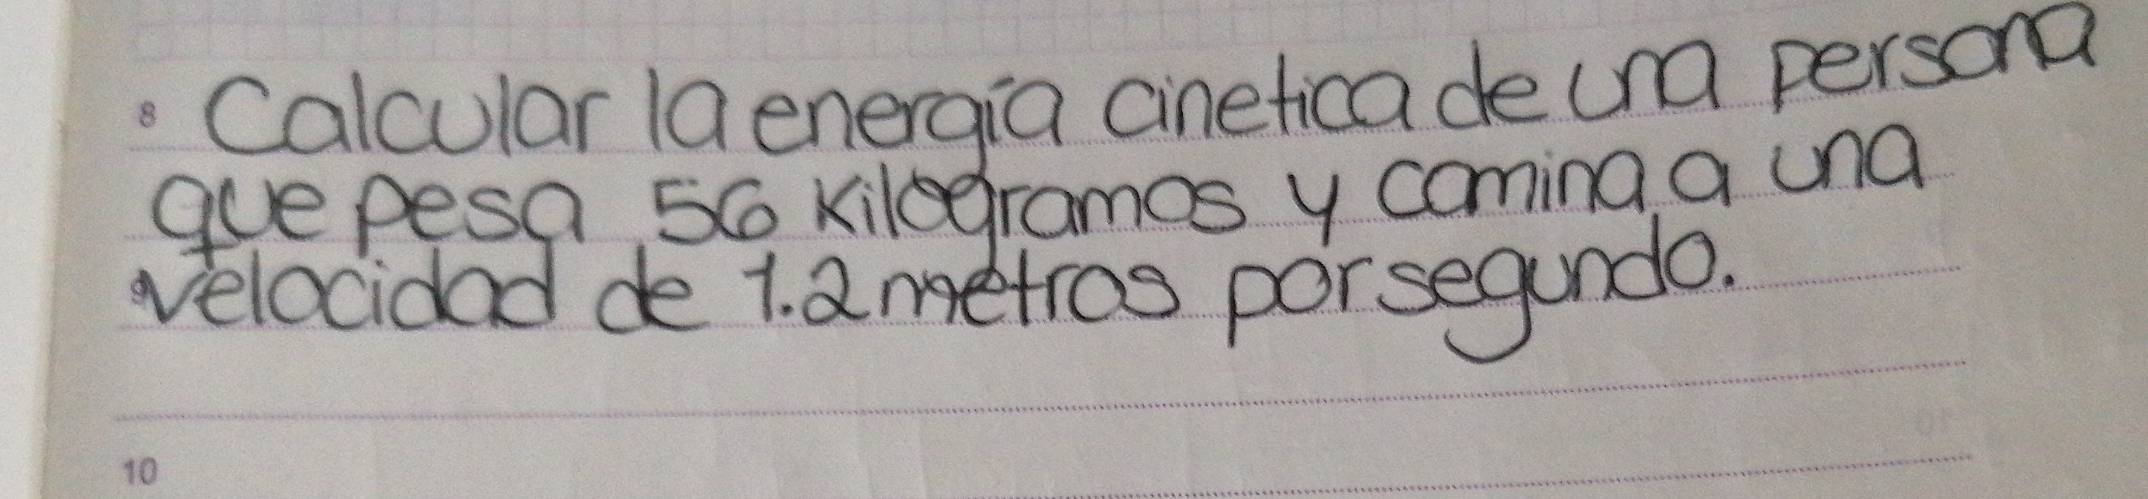 8 Calcular la energía cinetica de una persona
que pesa 56 Kilogramos y camina a una
velocidad de 1.2 metros por segundo.
10